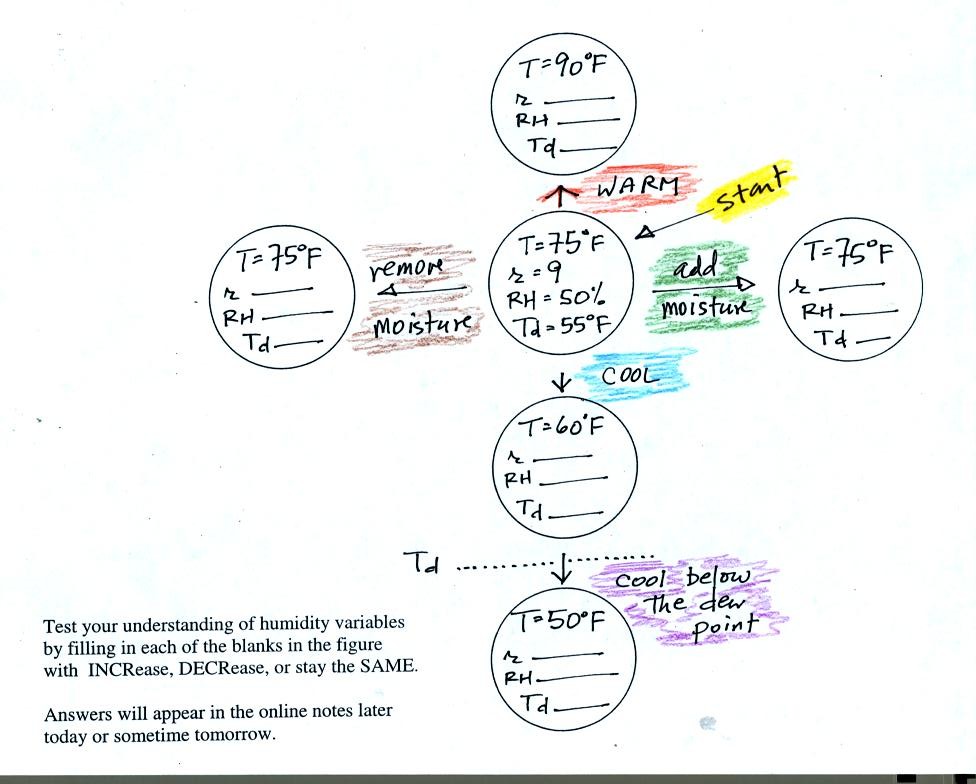 T=90°F
r
RH
Td
WARM
Start
T=75°F
r
RH
Td
remove
moisture
T=75°F
r=9
RH=50%
Td=55°F
add
moisture
T=75°F
r
RH
Td
COOL
T=60°F
r
RH
Td
Td
Cool below
the dew
point
T=50°F
r
RH
Td
Test your understanding of humidity variables
by filling in each of the blanks in the figure
with INCRease, DECRease, or stay the SAME.
Answers will appear in the online notes later
today or sometime tomorrow.